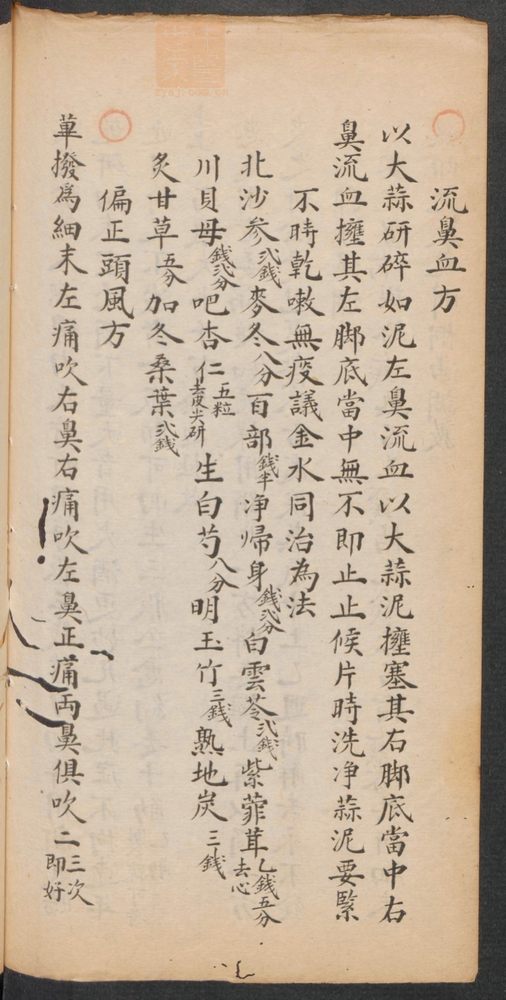 流鼻血方
以大蒜研碎如泥左鼻流血以大蒜泥擁塞其右脚底當中右
鼻流血擁其左脚底當中無不即止止候片時洗净蒜泥要緊
不時乾嗽無痰議金水同治為法
北沙参弍錢麥冬八分百部錢半净歸身錢弍分白雲苓弍錢紫菀茸乙錢五分去心
川貝母錢弍分吧杏仁五粒去皮尖研生白芍八分明玉竹三錢熟地炭三錢
炙甘草五分加冬桑葉弍錢
偏正頭風方
蓽撥爲細末左痛吹右鼻右痛吹左鼻正痛両鼻俱吹二三次即好